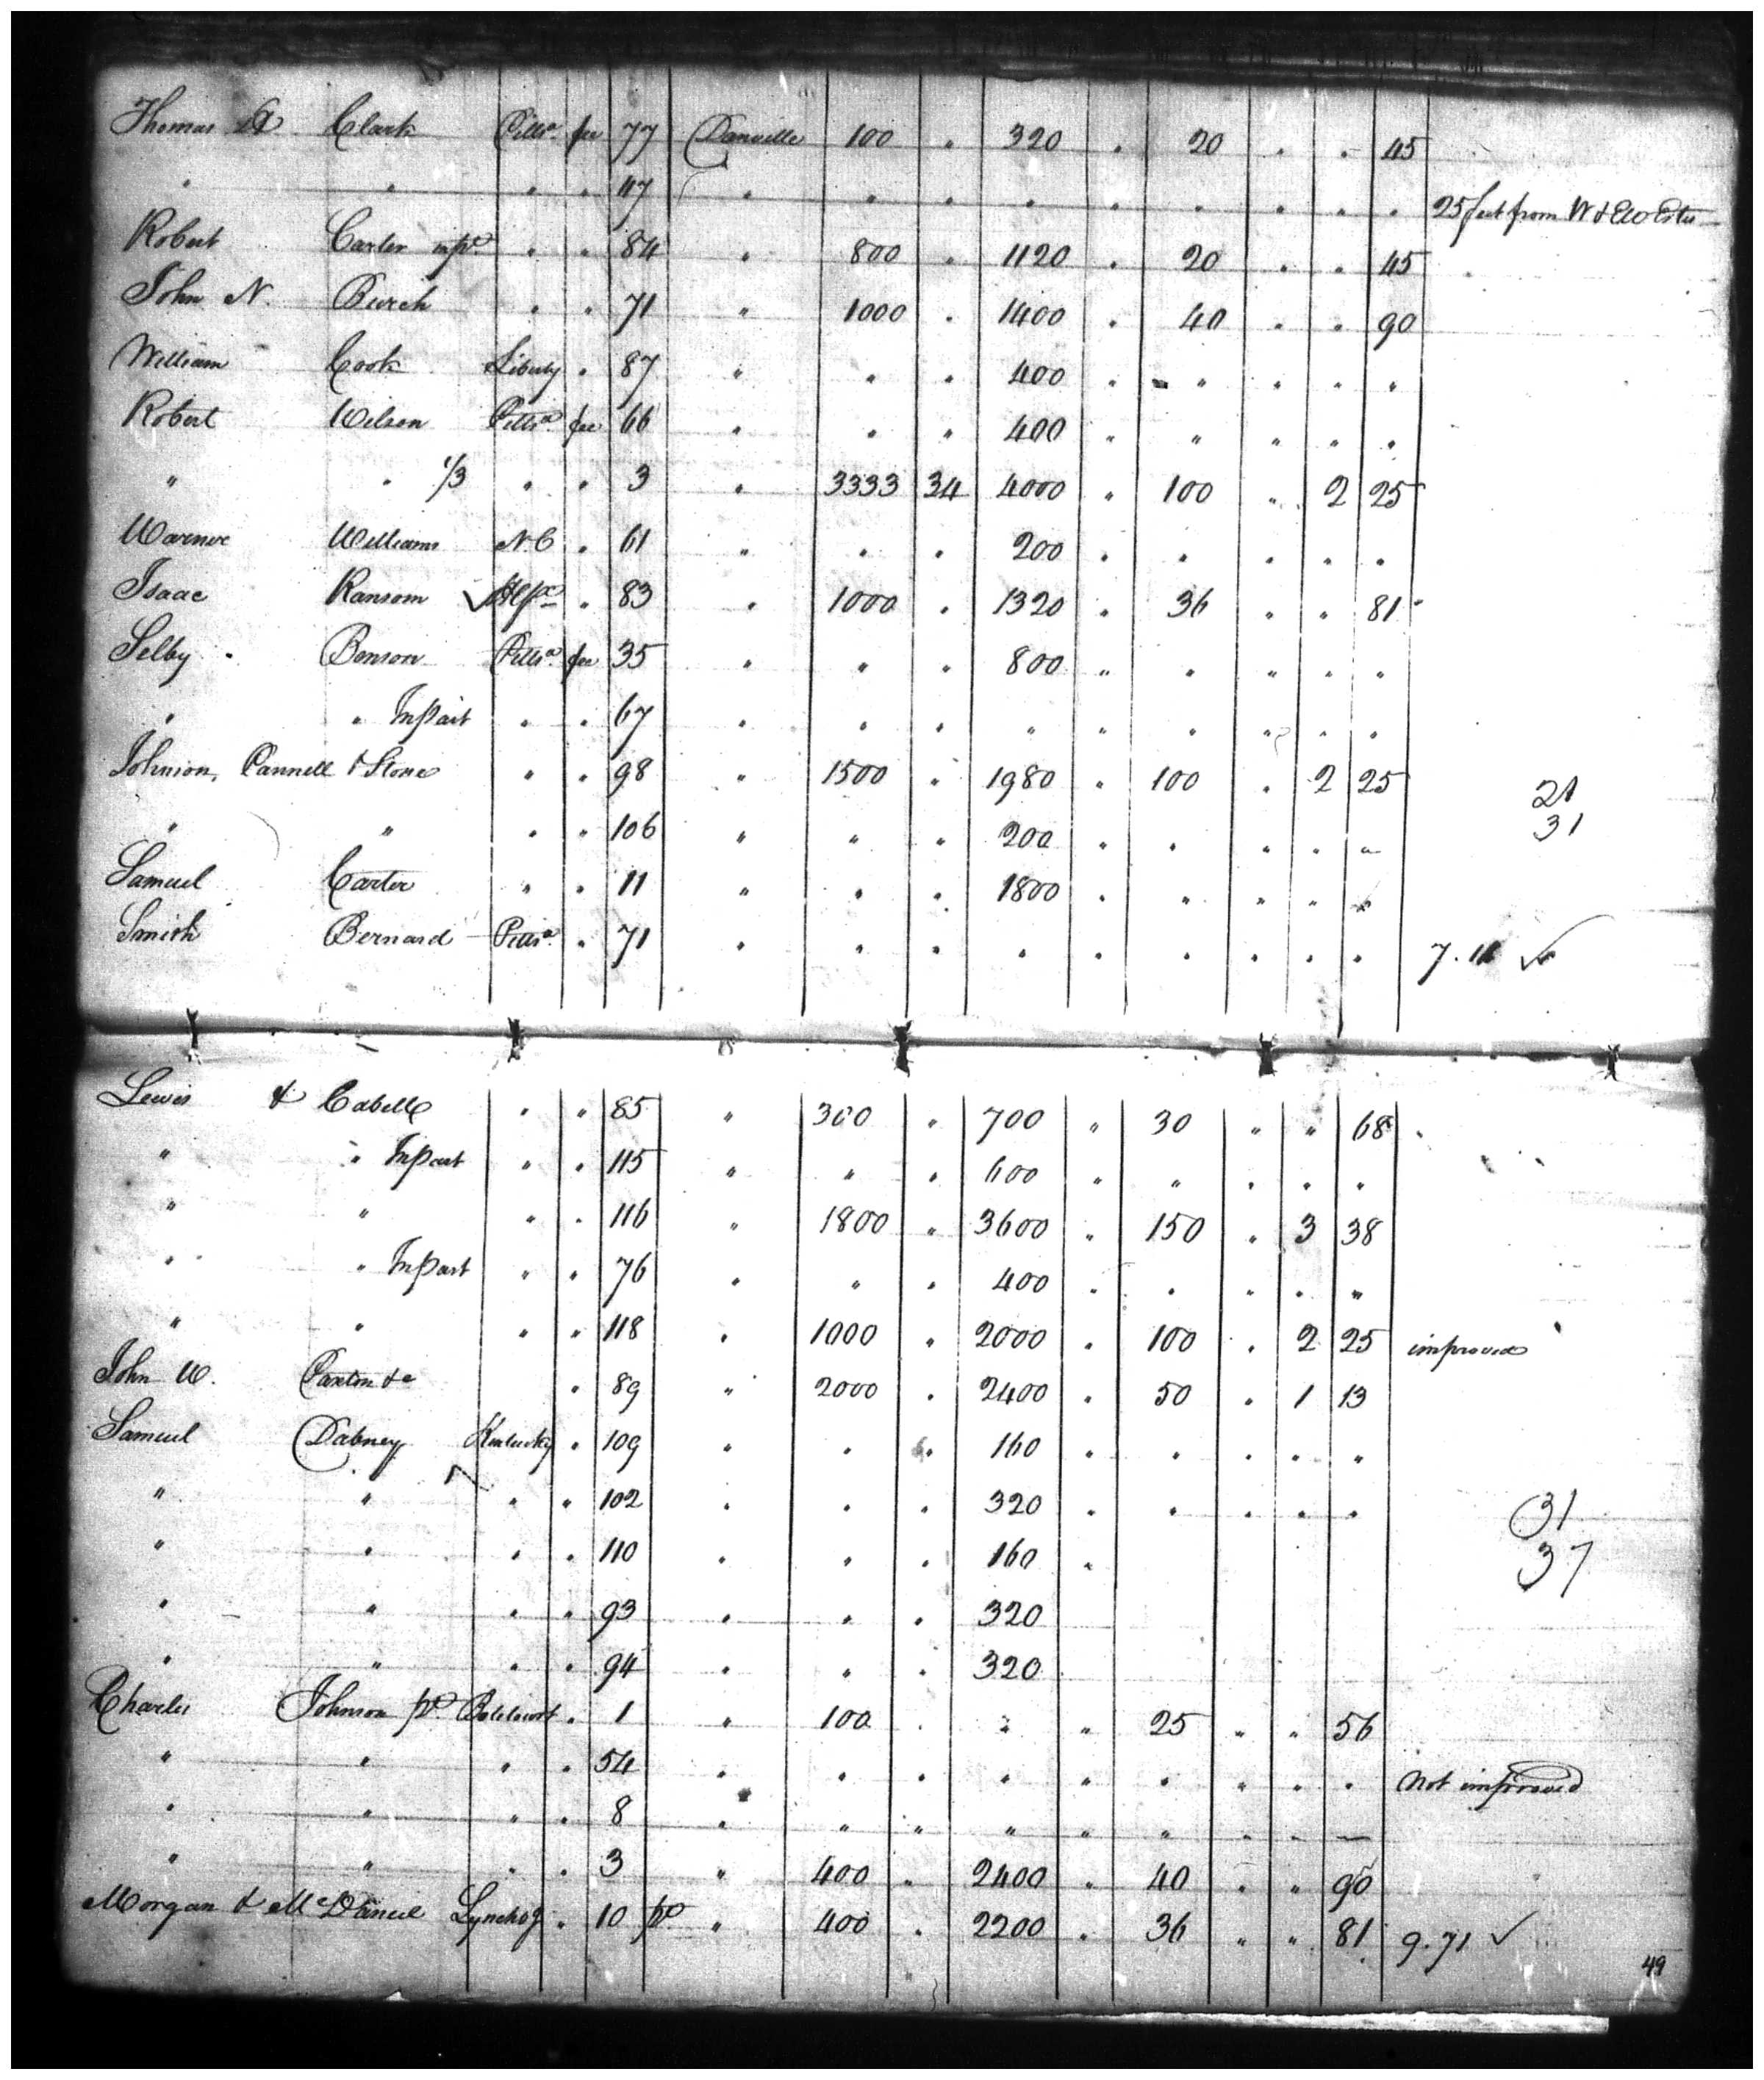 Thomas D Clark Pitts.ª fee 77 Danville 100 " 320 " 20 " " 45
" " " " 47 " " " " " " " " " 25 feet from W & E W Estes
Robert Carter inpt. " " 84 " 800 " 1120 " 20 " " 45
John N. Burch " " 71 " 1000 " 1400 " 40 " " 90
William Cook Liberty " 87 " " " 400 " " " " "
Robert Wilson Pitts.ª fee 66 " " " 400 " " " " "
" " 1/3 " " 3 " 3333 34 4000 " 100 " 2 25
Warner Williams N.C " 61 " " " 200 " " " " "
Isaac Ransom ✓ Hfx " 83 " 1000 " 1320 " 36 " " 81
Selby Benson Pitts.ª fee 35 " " " 800 " " " " "
" " In part " " 67 " " " " " " " " "
Johnson, Pannell & Stone " " 98 " 1500 " 1980 " 100 " 2 25 21
" " " " 106 " " " 200 " " " " " 31
Samuel Carter " " 11 " " " 1800 " " " " "
Smith Bernard Pitts.ª " 71 " " " " " " " " " 7.11 ✓
Lewis & Cabell " " 85 " 300 " 700 " 30 " " 68
" " In part " " 115 " " " 600 " " " " "
" " " " 116 " 1800 " 3600 " 150 " 3 38
" " In part " " 76 " " " 400 " " " " "
" " " " 118 " 1000 " 2000 " 100 " 2 25 improved
John W. Paxton & c " 89 " 2000 " 2400 " 50 " 1 13
Samuel Dabney Kentucky " 109 " " " 160 " " " " "
" " " " 102 " " " 320 " " " " " 31
" " " " 110 " " " 160 " 37
" " " " 93 " " " 320
" " " " 94 " " " 320
Charles Johnson pt. Botetourt " 1 " 100 " " " 25 " " 56
" " " " 54 " " " " " " " " " Not improved
" " " " 8 " " " " " " " " —
" " " " 3 " 400 " 2400 " 40 " " 90
Morgan & McDaniel Lynchbg " 10 pt " 400 " 2200 " 36 " " 81 9.71 ✓
49